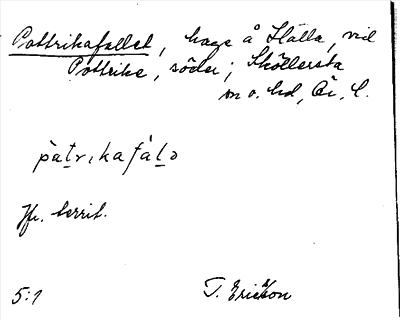 Pottrikafallet, hage å Hälla, vid
Pottrike, söder; Sköllersta
sn o. hd, Ör. l.
pàt̲rıkafál̲ɔ
Jfr. territ.
5:1 T. Ericsson